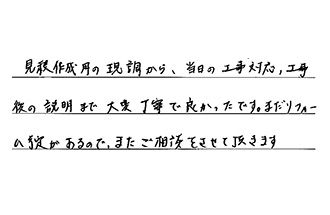 見積作成用の現調から、当日の工事対応，工事
後の説明まで大変丁寧で良かったです。まだリフォー
ム予定があるので、またご相談をさせて頂きます